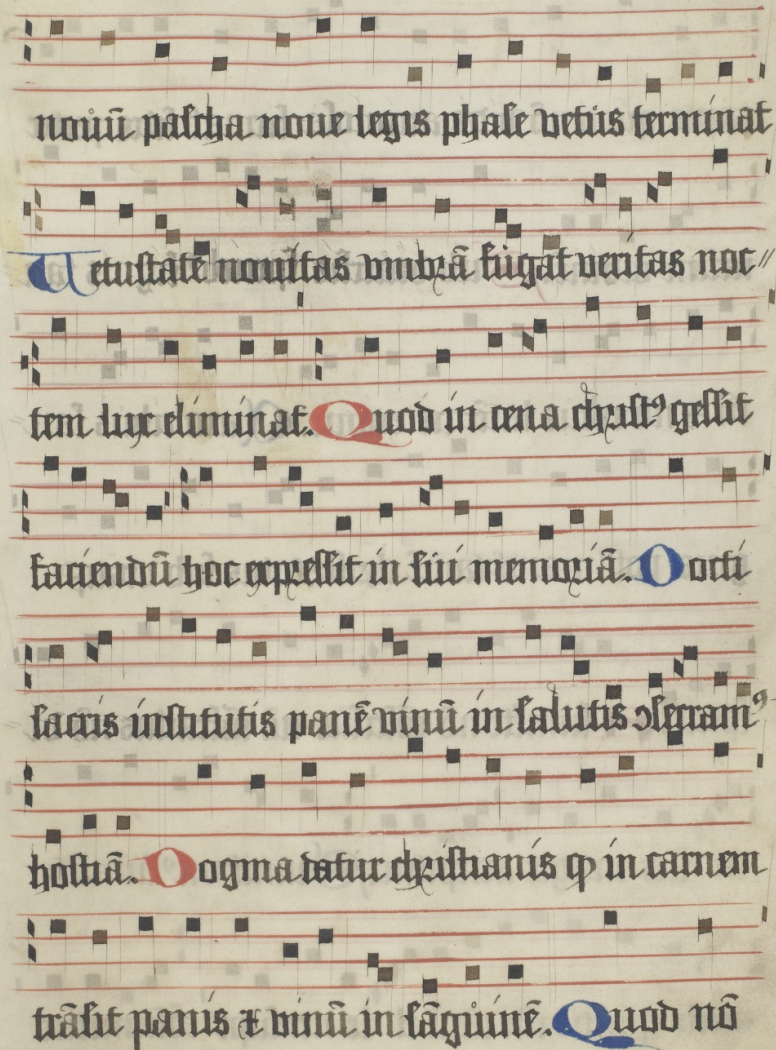 nouū pascha noue legis phase vetus terminat
Vetustatē nouitas vmbrā fugat veritas noc //
tem lux eliminat. Quod in cena christꝰ gessit
faciendū hoc expressit in sui memoriā. Docti
sacris institutis panē vinū in salutis ↄsecramꝰ
hostiā. Dogma datur christianis ꝙ in carnem
trāsit panis ⁊ vinū in sāguinē. Quod nō